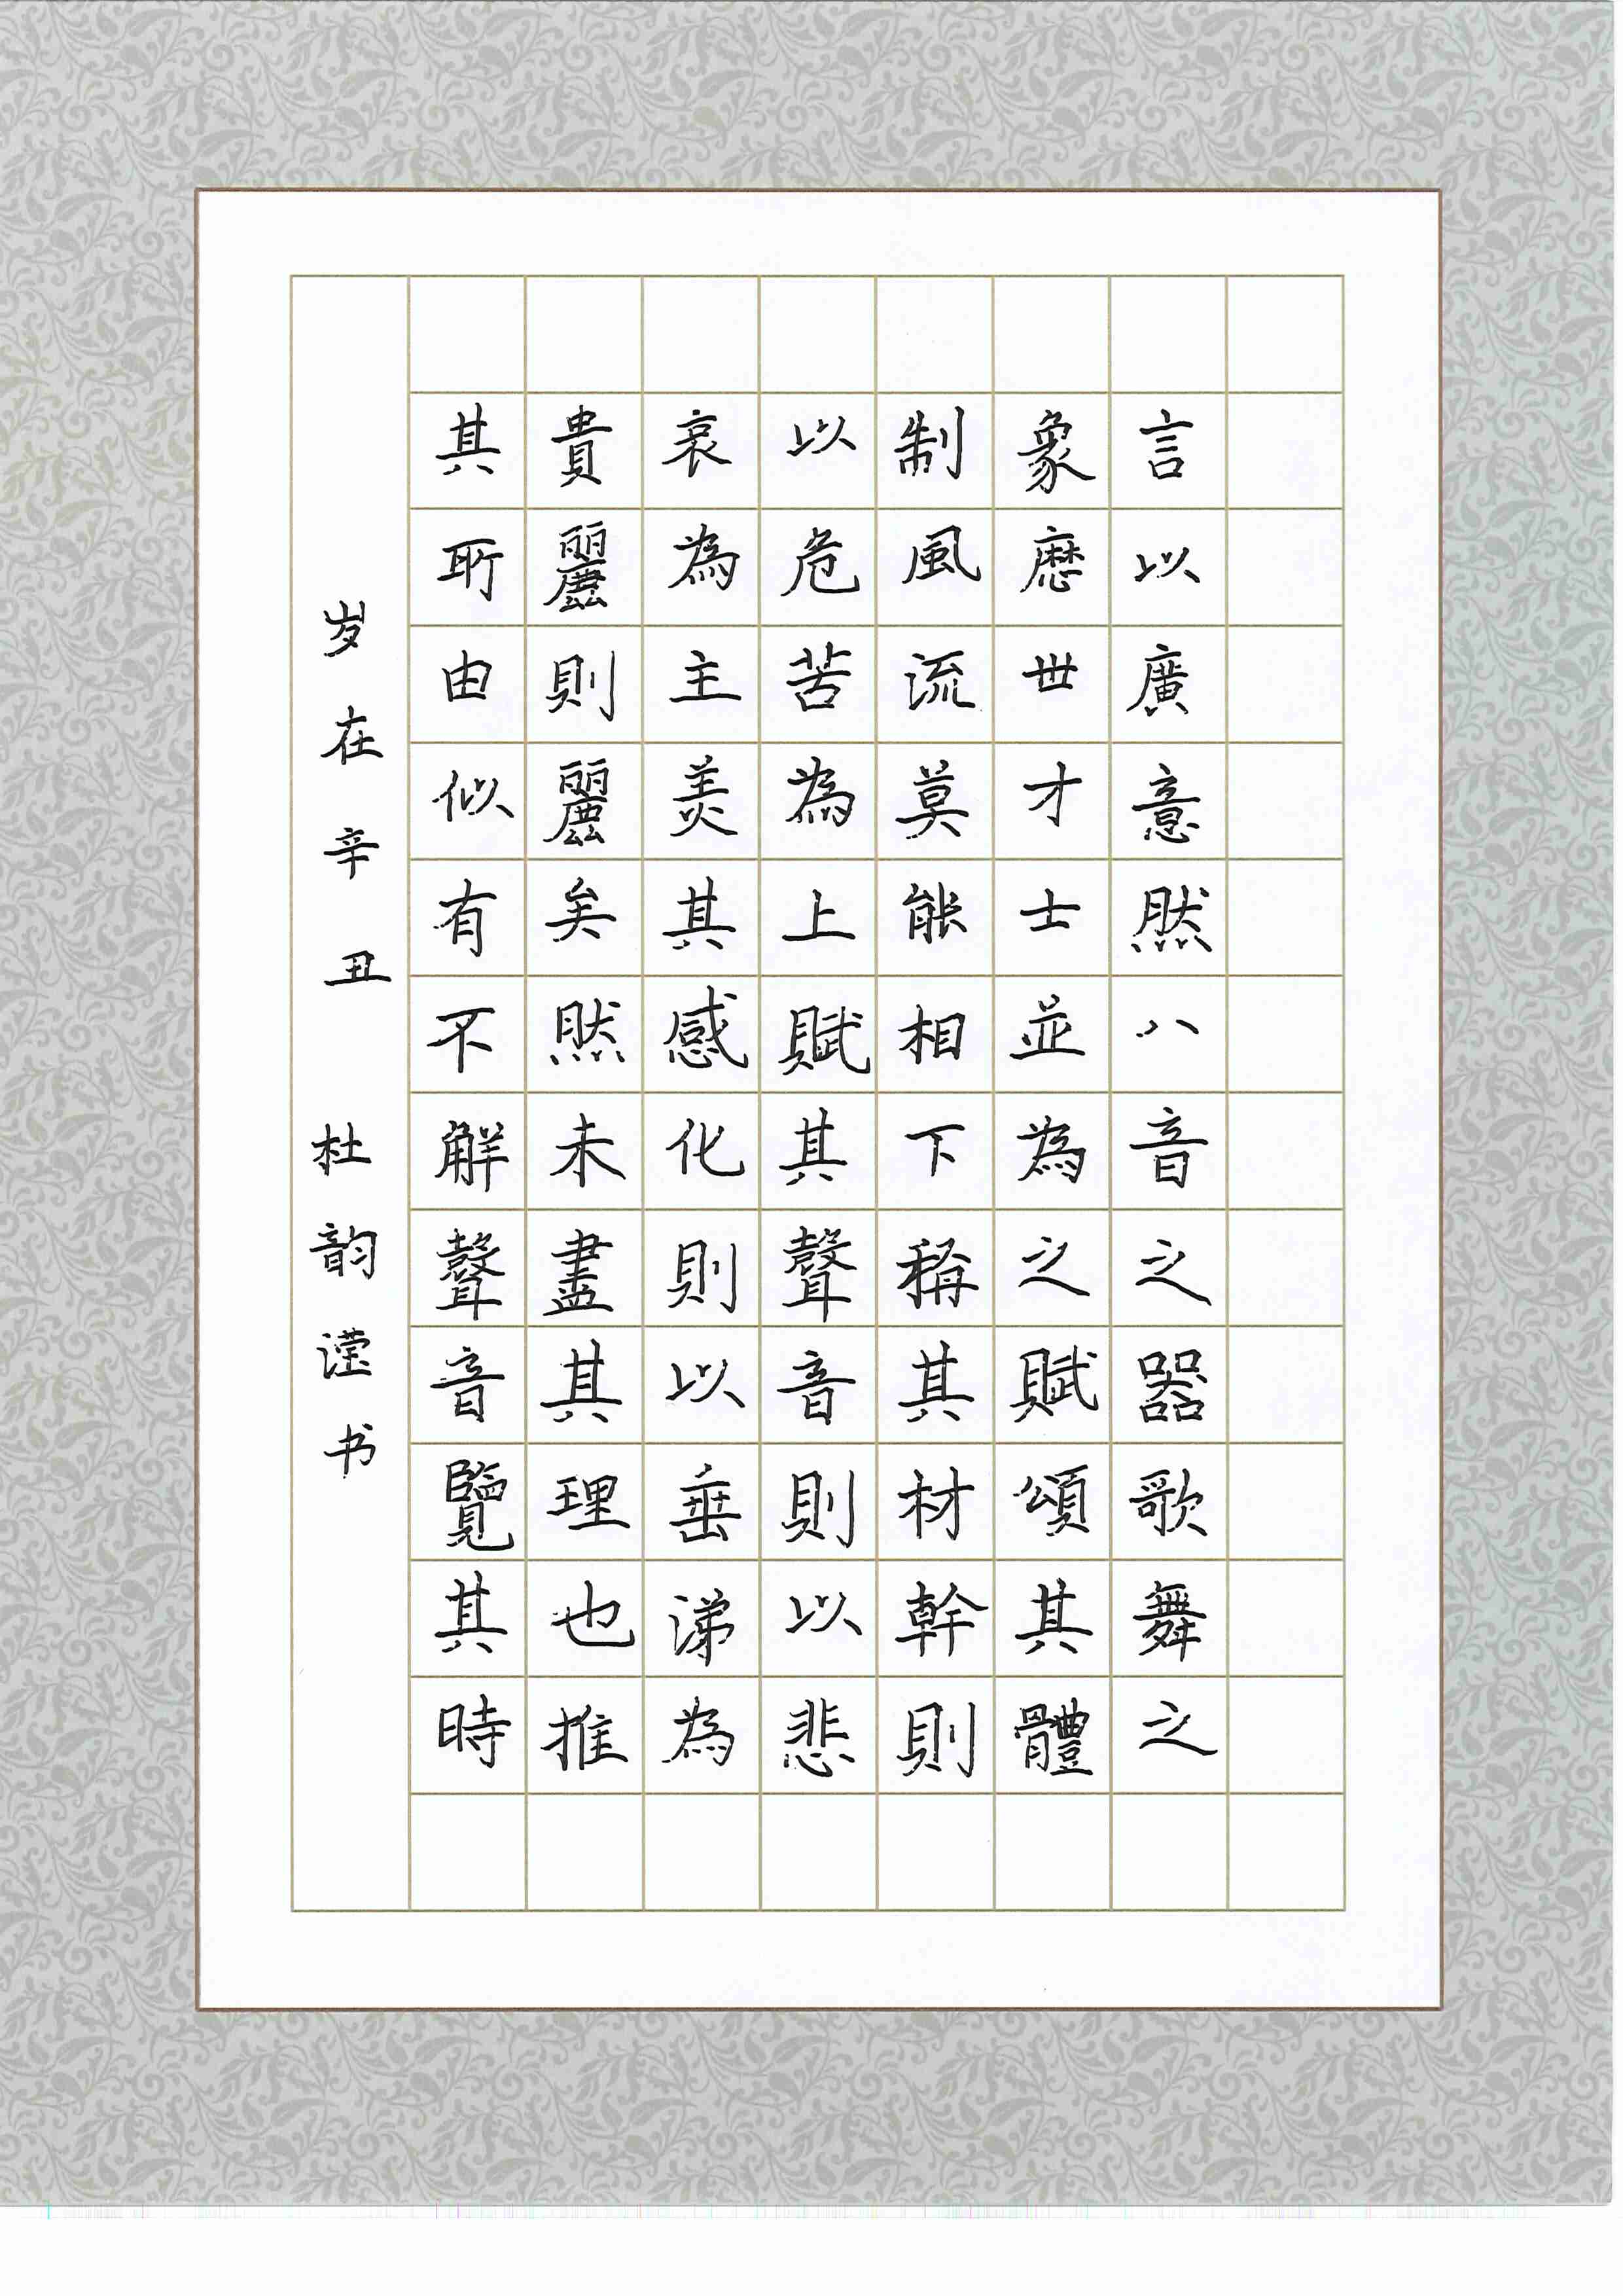 言以廣意然八音之器歌舞之
象歷世才士並為之賦頌其體
制風流莫能相下稱其材幹則
以危苦為上賦其聲音則以悲
哀為主美其感化則以垂涕為
貴麗則麗矣然未盡其理也推
其所由似有不解聲音覽其時
岁在辛丑 杜韵滢书